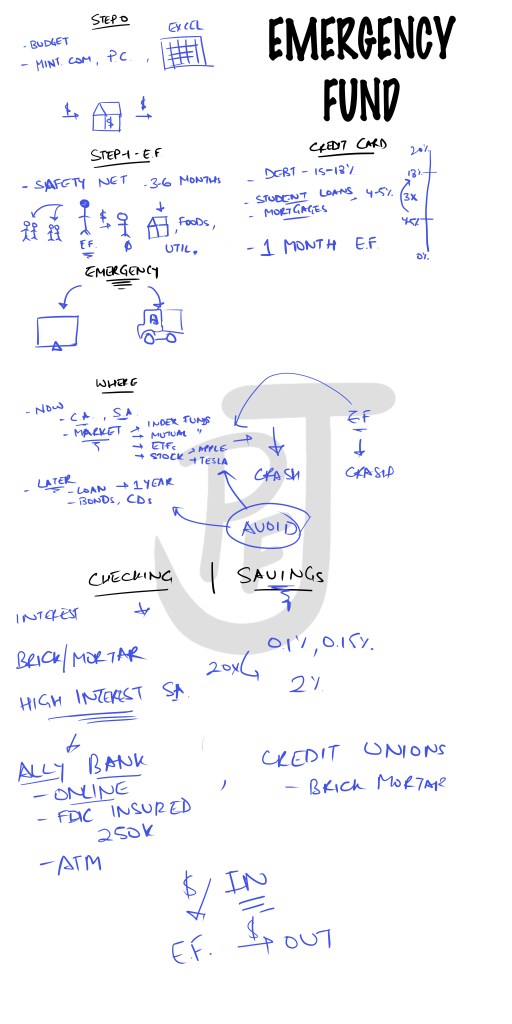 EMERGENCY
FUND
STEP 0
EXCEL
- BUDGET
- MINT.COM, P.C.,
$ $ $
STEP-1-E.F
- SAFETY NET - 3-6 MONTHS
$
E.F.
FOODS,
UTIL.
CREDIT CARD
- DEBT - 15-18%
- STUDENT LOANS - 4-5%
- MORTGAGES
- 1 MONTH E.F.
20%
18%
3X
4-5%
0%
EMERGENCY
A
WHERE
- NOW
- CA, SA
- MARKET → INDEX FUNDS
→ MUTUAL "
→ ETFs → APPLE
→ STOCK → TESLA
CRASH
EF
CRASH
- LATER
- LOAN → 1 YEAR
- BONDS, CDs
AVOID
CHECKING | SAVINGS
INTEREST
0.1%, 0.15%.
BRICK/MORTAR
20X
2%
HIGH INTEREST SA.
ALLY BANK
- ONLINE
- FDIC INSURED
250K
- ATM
, CREDIT UNIONS
- BRICK MORTAR
$ IN
E.F. $ → OUT